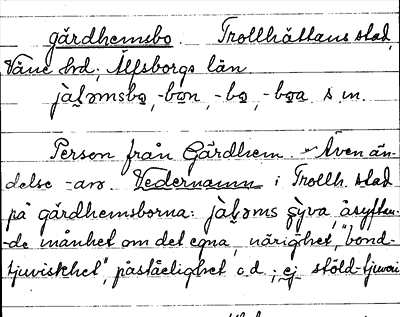 gärdhemsbo Trollhättans stad,
Väne hd, Älfsborgs län
jàḷəmsbo, -bon, -bo, -boa s. m.
Person från Gärdhem. – Även än-
delse -arə. Vedernamn i Trollh. stad
på gärdhemsborna: jàḷəms ʒyva, åsyftan-
de månhet om det egna, närighet, "bond-
tjuviskhet", påståelighet o.d.; ej stöld-tjuveri